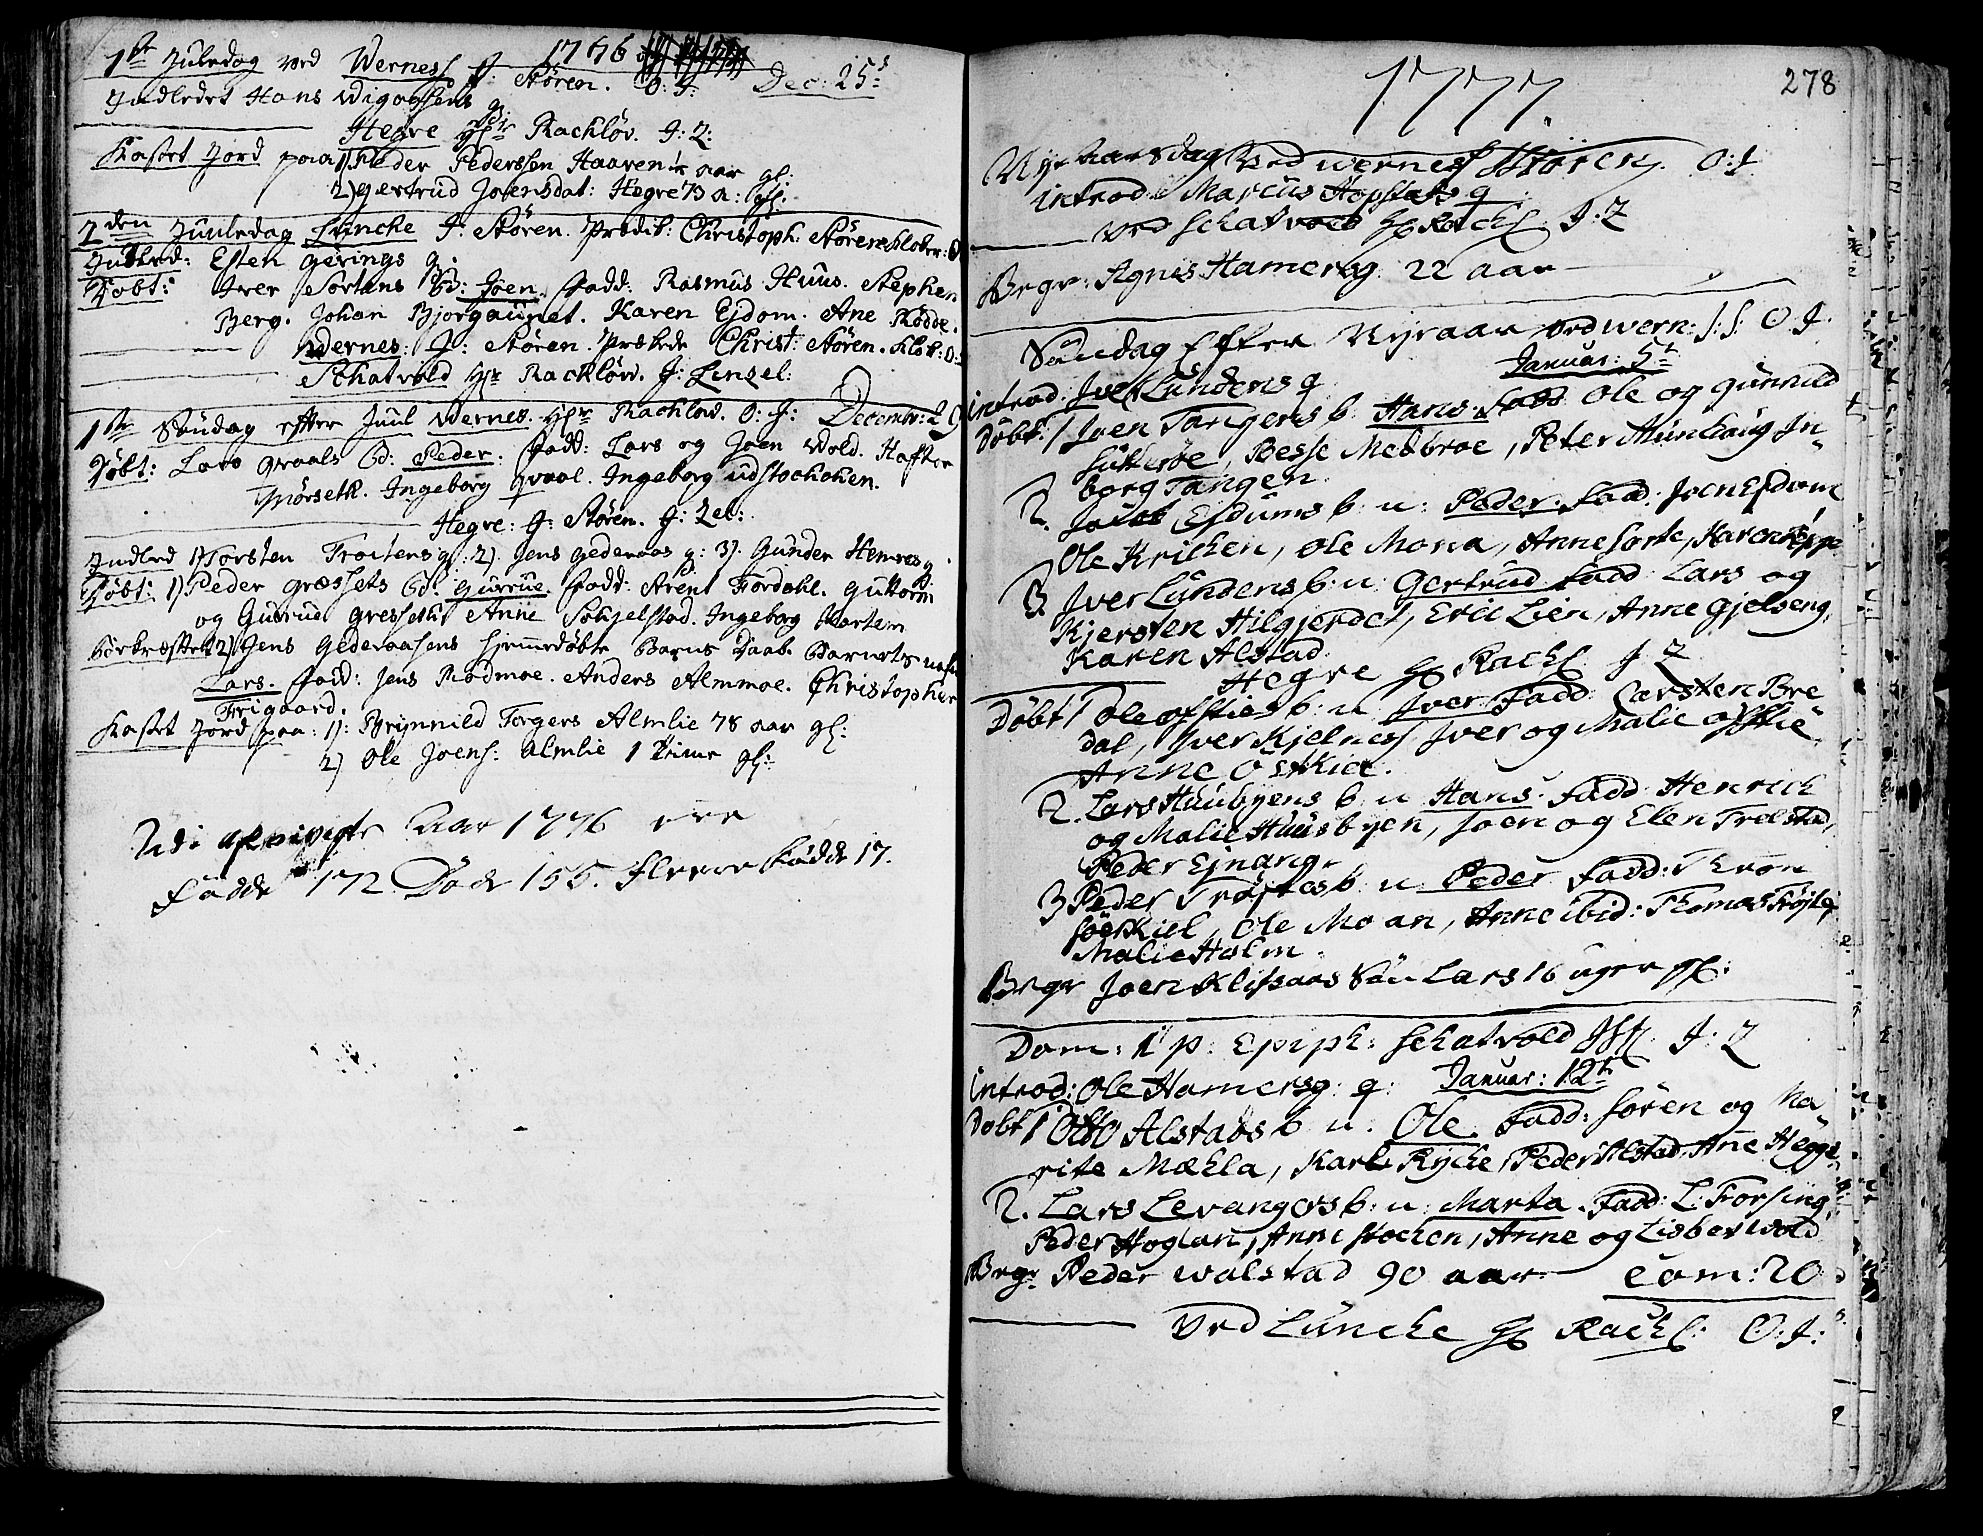 1776
1te Juledag ved Wernes J: Støren. O: J: Dec: 25:
Indledet Hans Wigogsens q.
Hegre Hr Rachløv. J: 2:
Kastet Jord paa 1) Peder Pedersson Haaren aar gl:
2) Gertrud Joensdat: Hegre 73 a: gl:
2den Juuledag Luncke J: Støren. Prædik: Christoph. Støren Klokker:
Indled: Esten Gerings q.
Døbt: Iver Sortans Bd: Joen. Fadd: Rasmus Huus. Stephen
Berg. Johan Bjorgaunet. Karen Ejdom. Ane Rødde.
Wernes. J: Støren. Præked Christ: Støren. Klok: O:
Schatvold Hr Rachløw. J: Lenzel:
1te Søndag efter Juul Wernes. Hr Rachløv. O: J: Decembr: 29
Døbt: Lars Graals Bd: Peder. Fadd: Lars og Joen Wold. Hafter
Mørseth. Ingeborg Graal. Ingeborg udstochchen.
Hegre: J: Støren. J: 2et:
Indled 1) Torsten Troitens q: 2) Jens Gederaas q: 3). Gunder Hemres q.
Døbt: 1) Peder Græssets Bd. Gurrue. Fadd: Arent Fordahl. Guttorm
og Gurrud Gresseth. Anne Schjelstad. Ingeborg Wartem
2) Jens Gederaasens hjemmedøbte Barns Daab. Barnets nafn
Lars. Fadd: Jens Rødmoe. Anders Almmoe. Christopher
Frigaard.
Kastet Jord paa: 1): Brynnild Torgers Almlie 78 aar gl:
2) Ole Joens: Almlie 1 Time gl:
Udi afvigte Aar 1776 ere
Fødde 172 Døde 155. Fleere Fødde 17.
278
1777.
Nye Aarsdag ved Wernes Støren. O: J.
introd: Marcus Hopstads q
ved Schatvold Hr Rachl J: 2
Begr: Agnes Hamer 22 aar
Søndag Efter Nyeaar ved Wern: J: S: O J.
Januar: 5t
introd: Iver Lundens q
Døbt: 1 Joen Tangens b: Hans. Fadd Ole og Gunnild
Sutterøe, Besse Medbroe, Peter Munkaug In¬
borg Tangen.
2. Jacob Ejdums b: u: Peder. Fadd: Joen Ejdom
Ole Krichen, Ole Mona, Anne Sorte, Karen Kipp
3. Iver Lundens b: u: Gertrud Fadd Lars og
Kjersten Hilgjerdet, Eric Lien, Anne Gjelseng,
Karen Alstad.
Hegre Hr Rachl J 2
Døbt 1 Ole Ofsties b: u Iver Fadd: Carsten Bre
dal, Iver Kjelness Iver og Malie Offstie
Anne Ostkie.
2. Lars Huusbyens b u Hans. Fadd Henrich
og Malie Huusbyen, Joen og Elen Trelstad,
Peder Ejnang.
3 Peder Trøftes b: u: Peder Fadd: Thron
Sørkiel, Ole Moan, Anne ibid: Thomas Trøjte,
Malie Holm.
Begr Joen Klefsaas Søn Lars 16 uger gl:
Dom: 1 p: Epiph: Schatvold J: 2
introd: Ole Hamers q: Januar: 12t
Døbt 1 Otto Alstads b u: Ole. Fadd: Søren og Ma¬
rite Mæhla, Karl Rycke, Peder Alstad, Ane Hegge
2. Lars Levangers b: u: Marta. Fadd: L: Forsing,
Peder Hoglan, Anne Stochen, Anne og Lisbet Wold
Begr Peder Walstad 90 aar Com: 20
Ved Luncke Hr Rachl: O: J: